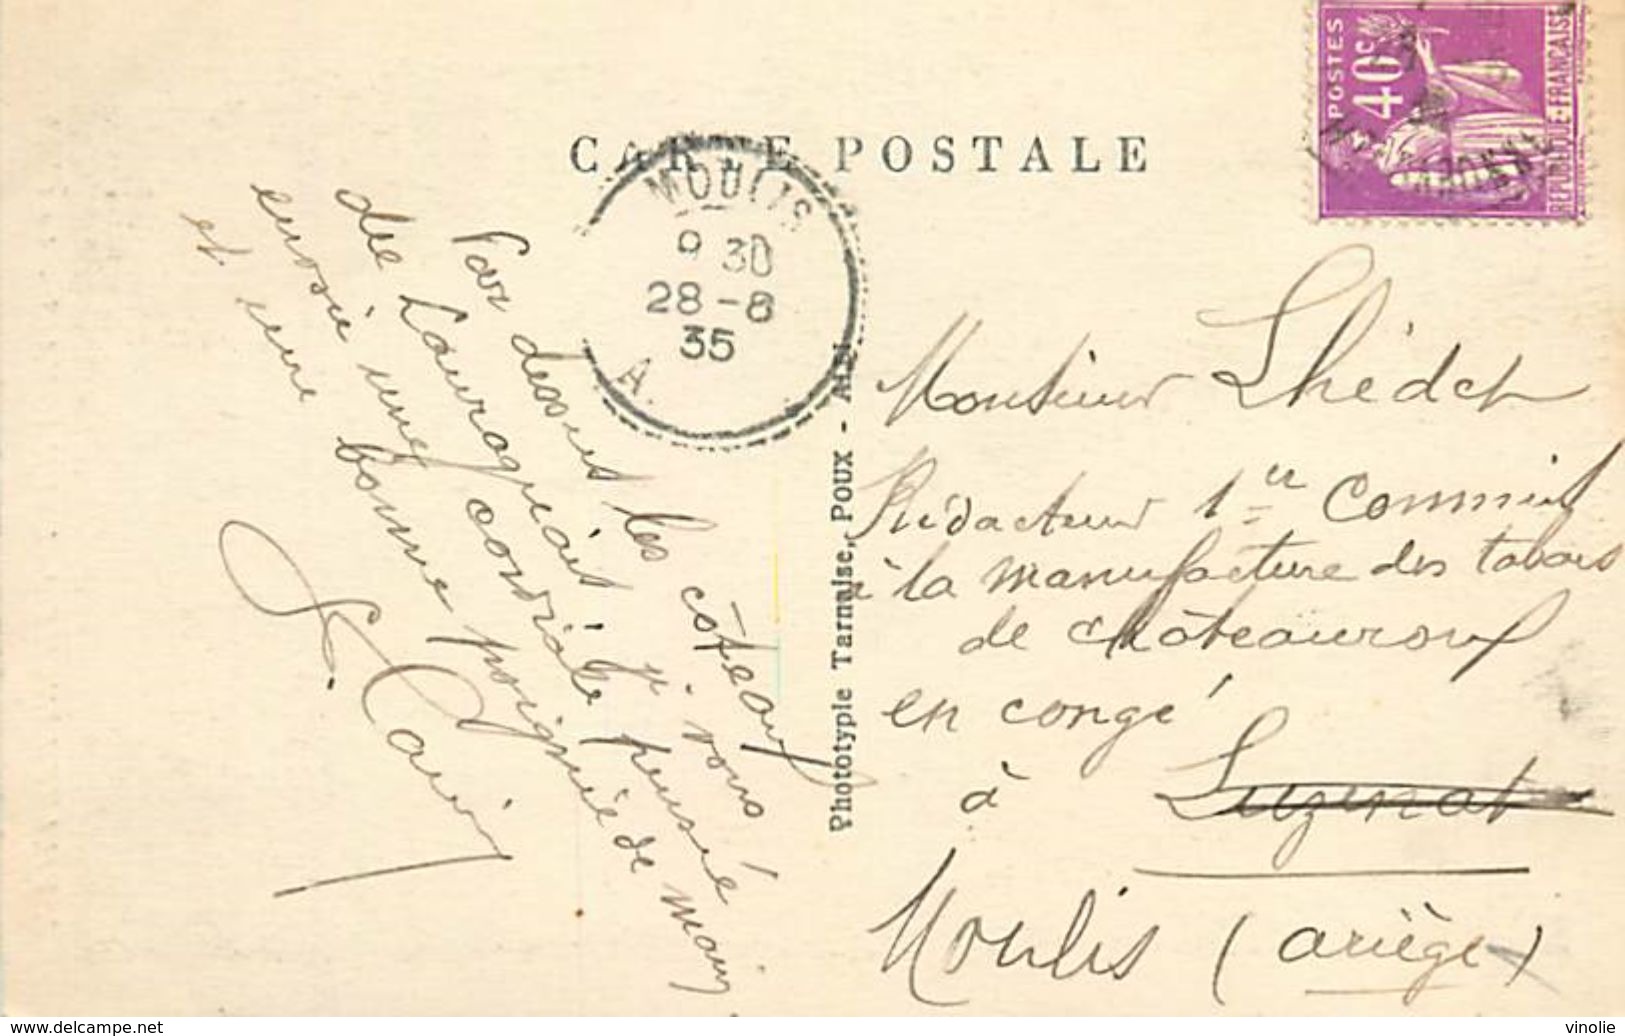 CARTE POSTALE
POSTES
40c
REPUBLIQUE-FRANÇAISE
MOULIS
9 30
28-8
35
A.
Par dessus les côteaux
du Lauraguais j. vous
envoie une cordiale pensée
et une bonne poignée de main
Phototypie Tarnaise, Poux - Albi
Monsieur
Rédacteur 1er Commis
à la manufacture des tabacs
de Châteauroux
en congé
à Luzenat
Moulis (ariège)
www.delcampe.net
vinolie